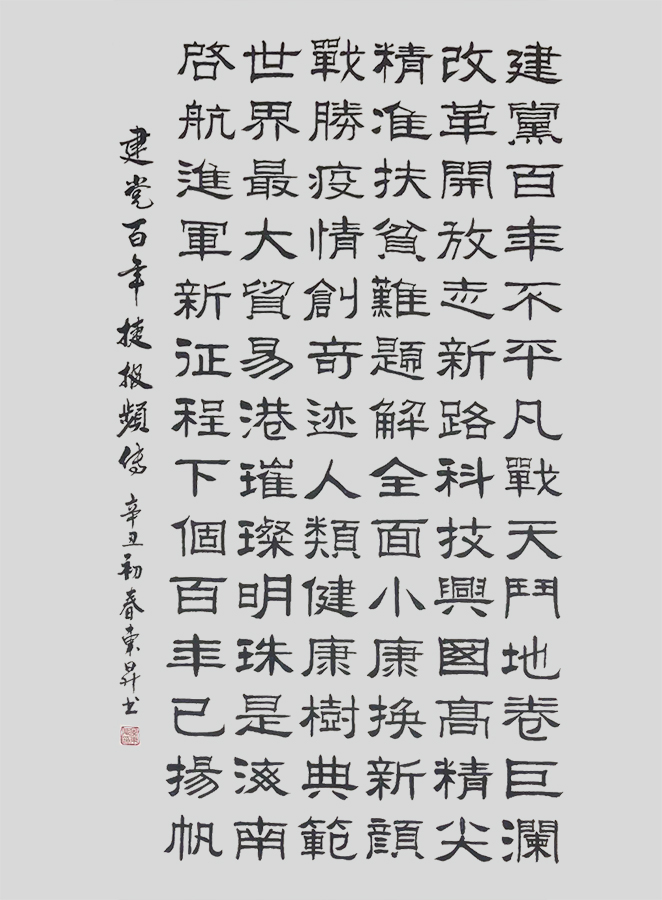 建黨百年不平凡戰天鬥地卷巨瀾
改革開放走新路科技興國高精尖
精准扶貧難題解全面小康換新顔
戰勝疫情創奇迹人類健康樹典範
世界最大貿易港璀璨明珠是海南
啓航進軍新征程下個百年已揚帆
建党百年捷报頻傳
辛丑初春東昇书